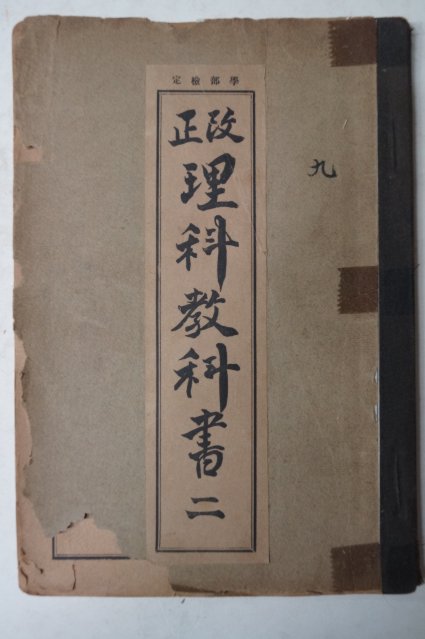 九
學部檢定
改正
理科教科書二